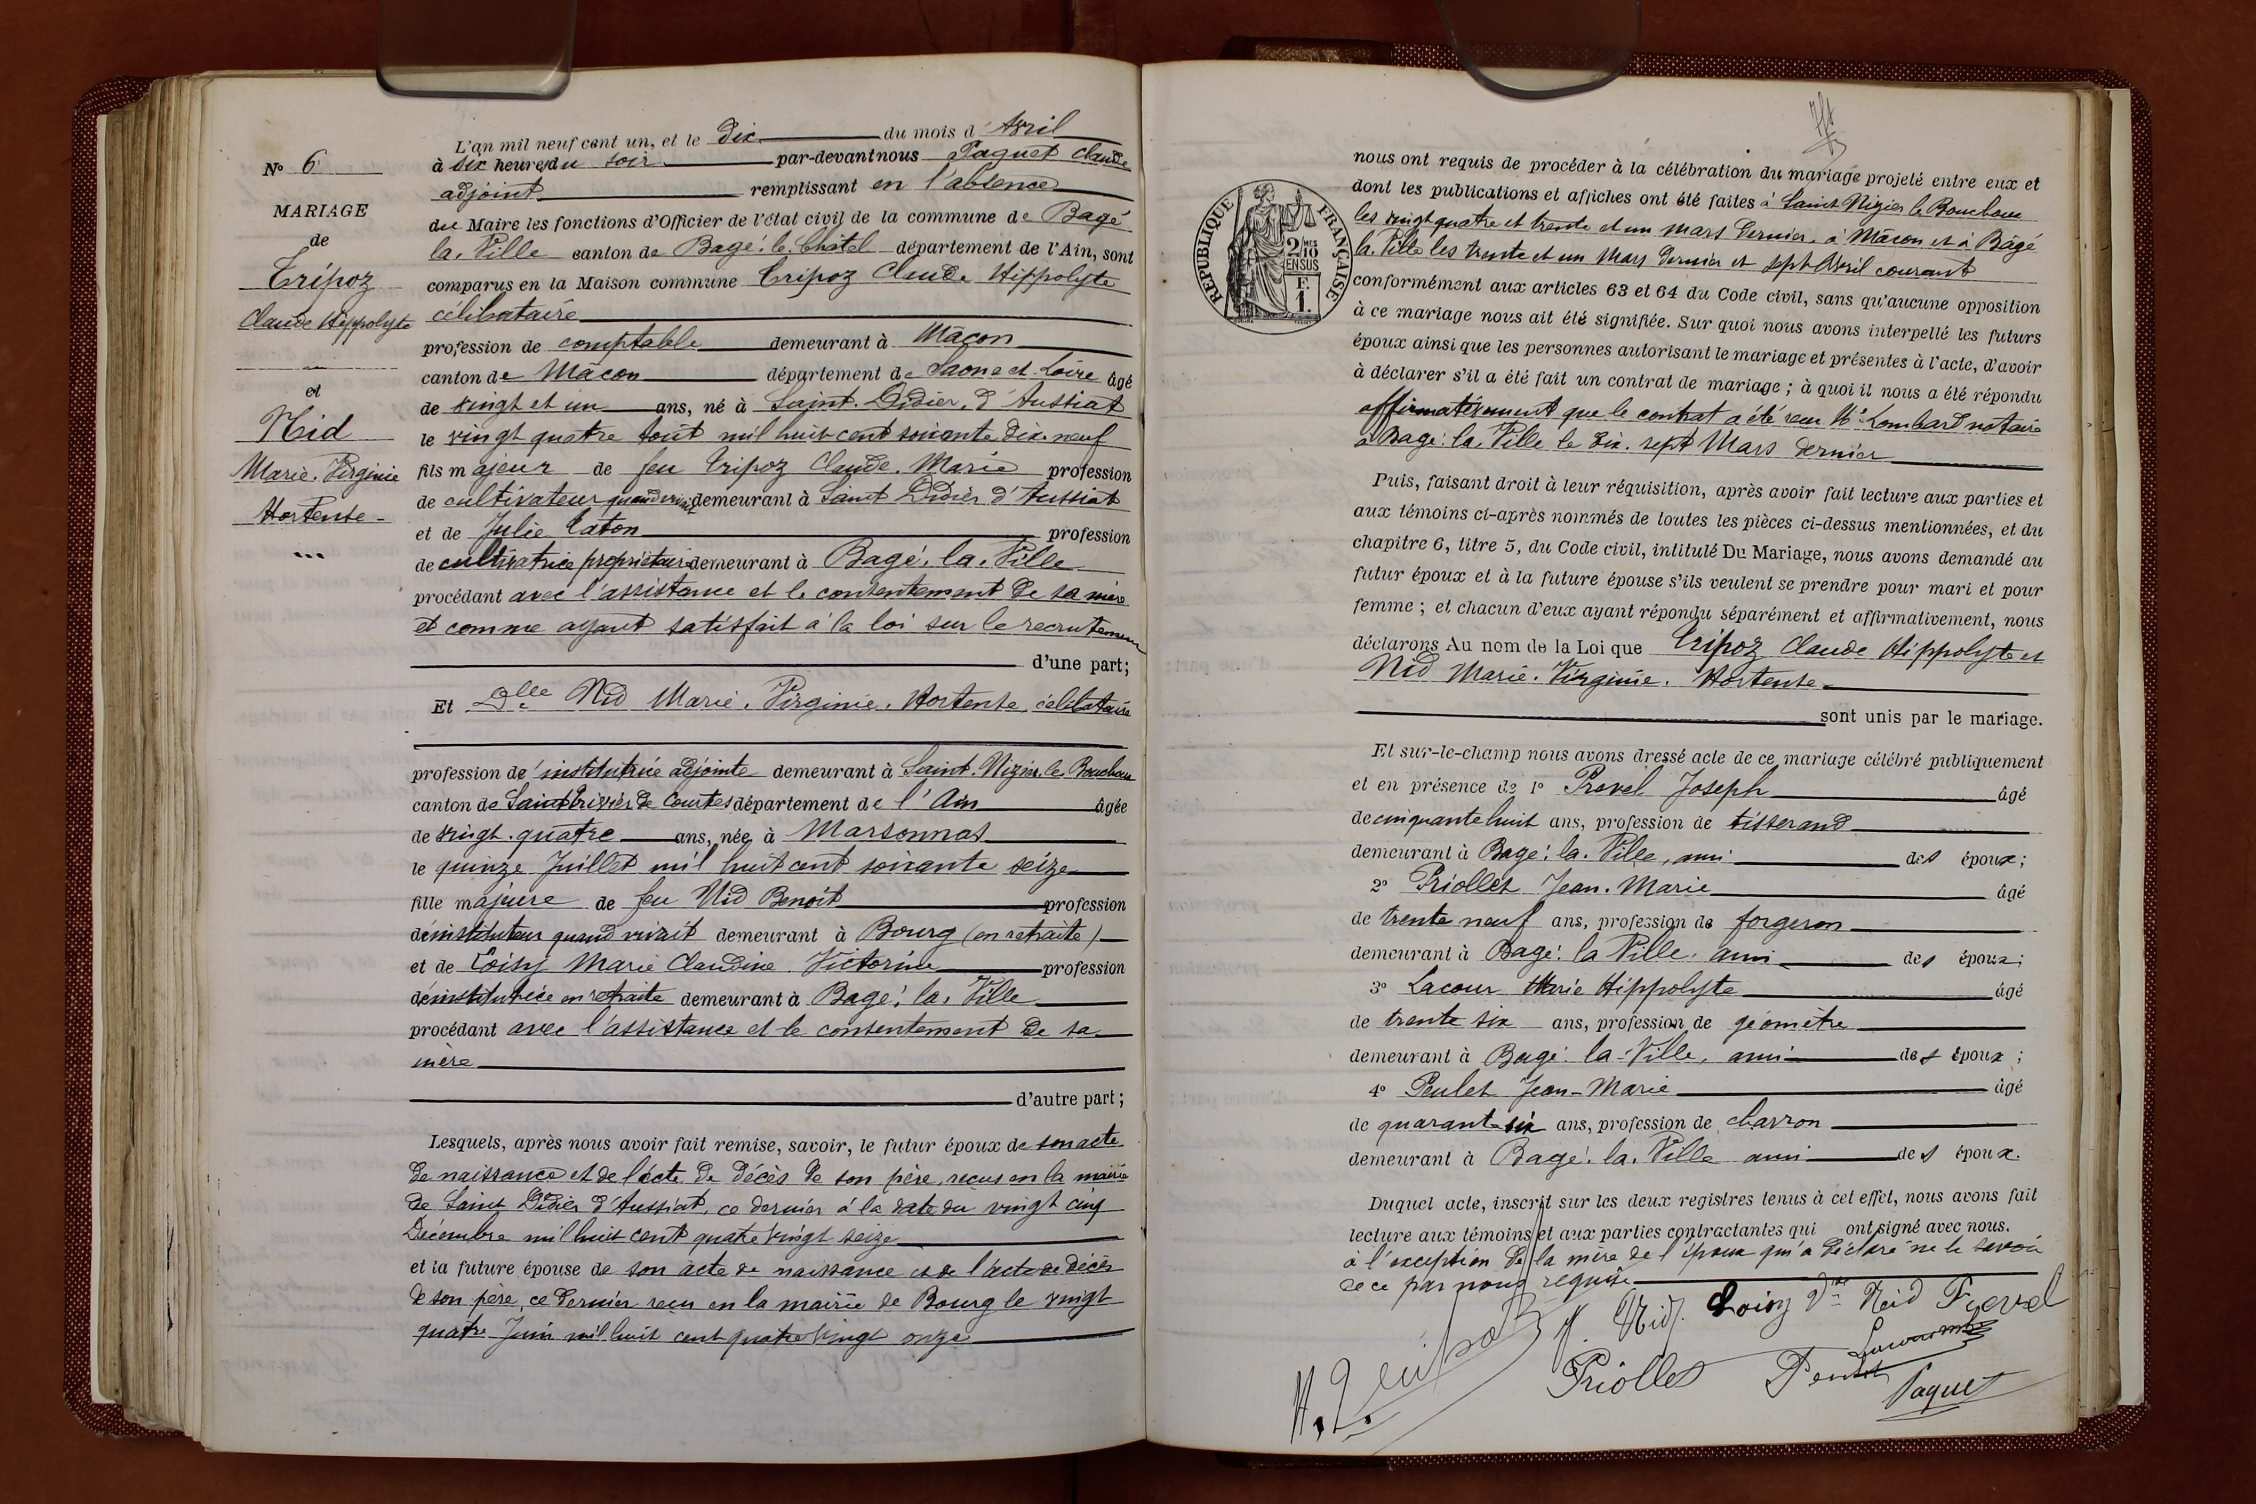 N° 6
MARIAGE
de
Tripoz
Claude Hippolyte
et
Nid
Marie. Virginie
Hortense
L'an mil neuf cent un, et le dix du mois d'Avril
à six heures du soir par-devant nous Paquet Claude
adjoint remplissant en l'absence
du Maire les fonctions d'Officier de l'état civil de la commune de Bagé
la. Ville canton de Bagé. le. Châtel département de l'Ain, sont
comparus en la Maison commune Tripoz Claude Hippolyte
célibataire
profession de comptable demeurant à Mâcon
canton de Mâcon département de Saone et. Loire âgé
de vingt et un ans, né à Saint. Didier. d'Aussiat
le vingt quatre Aout mil huit cent soixante dix. neuf
fils majeur de feu Tripoz Claude. Marie profession
de cultivateur quand vivait demeurant à Saint Didier d'Aussiat
et de Julie Caton profession
de cultivatrice propriétaire demeurant à Bagé. la. Ville
procédant avec l'assistance et le consentement de sa mère
et comme ayant satisfait à la loi sur le recrutement
d'une part;
Et Dlle Nid Marie. Virginie. Hortense célibataire
profession de institutrice adjointe demeurant à Saint. Nizier. le Bouchoux
canton de Saint Trivier de Courtes département de l'Ain âgée
de vingt. quatre ans, née à Marsonnas
le quinze Juillet mil huit cent soixante seize
fille majeure de feu Nid Benoît profession
d'instituteur quand vivait demeurant à Bourg (en retraite)
et de Loisy Marie Claudine Victorine profession
d'institutrice en retraite demeurant à Bagé. la. Ville
procédant avec l'assistance et le consentement de sa
mère
d'autre part;
Lesquels, après nous avoir fait remise, savoir, le futur époux de son acte
de naissance et de l'acte de décès de son père, reçus en la mairie
de Saint Didier d'Aussiat, ce dernier à la date du vingt cinq
Décembre mil huit cent quatre vingt seize
et la future épouse de son acte de naissance et de l'acte de décès
de son père, ce dernier reçu en la mairie de Bourg le vingt
quatre Juin mil huit cent quatre vingt onze
nous ont requis de procéder à la célébration du mariage projeté entre eux et
dont les publications et affiches ont été faites à Saint Nizier le Bouchoux
les vingt quatre et trente et un mars dernier. à Mâcon et à Bâgé
la. Ville les trente et un Mars dernier et sept Avril courant
RÉPUBLIQUE FRANÇAISE
2/10 MES
EN SUS
F.
1.
conformément aux articles 63 et 64 du Code civil, sans qu'aucune opposition
à ce mariage nous ait été signifiée. Sur quoi nous avons interpellé les futurs
époux ainsi que les personnes autorisant le mariage et présentes à l'acte, d'avoir
à déclarer s'il a été fait un contrat de mariage; à quoi il nous a été répondu
affirmativement que le contrat a été reçu Me Lombard notaire
à Bagé. la. Ville le dix. sept Mars dernier
Puis, faisant droit à leur réquisition, après avoir fait lecture aux parties et
aux témoins ci-après nommés de toutes les pièces ci-dessus mentionnées, et du
chapitre 6, titre 5, du Code civil, intitulé Du Mariage, nous avons demandé au
futur époux et à la future épouse s'ils veulent se prendre pour mari et pour
femme; et chacun d'eux ayant répondu séparément et affirmativement, nous
déclarons Au nom de la Loi que Tripoz Claude Hippolyte et
Nid Marie. Virginie. Hortense
sont unis par le mariage.
Et sur-le-champ nous avons dressé acte de ce mariage célébré publiquement
et en présence de 1° Prevel Joseph âgé
de cinquante huit ans, profession de tisserand
demeurant à Bagé. la. Ville, ami des époux;
2° Priollet Jean. Marie âgé
de trente neuf ans, profession de forgeron
demeurant à Bagé. la Ville. ami des époux;
3° Lacour Marie Hippolyte âgé
de trente six ans, profession de géomètre
demeurant à Bagé. la-Ville, ami des époux;
4° Peulet Jean-Marie âgé
de quarante six ans, profession de charron
demeurant à Bagé. la. Ville ami des époux.
Duquel acte, inscrit sur les deux registres tenus à cet effet, nous avons fait
lecture aux témoins et aux parties contractantes qui ont signé avec nous.
à l'exception de la mère de l'époux qui a déclaré ne le savoir
de ce par nous requise
H. Tripoz H. Nid. Loisy Vve Neid Prevel
Priollet Peulet Paquet